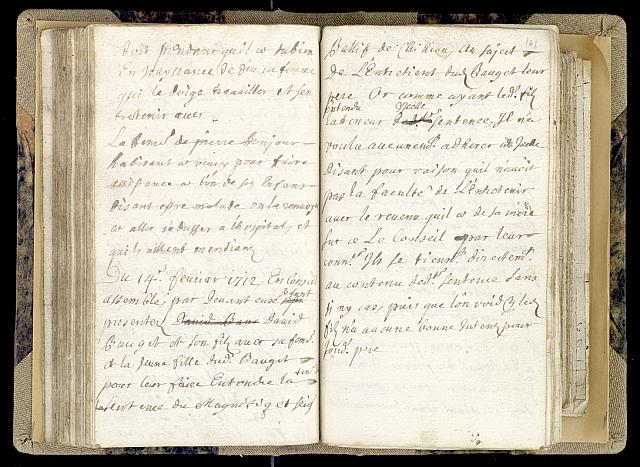 doit pendant quil a du bien
En Jouyssance de Dieu sa femme
qui le doige travailler et sen
tretenir avec
La femme de pierre Bonjour
habitant a vevey pour faire
assistance a bon de ses Enfans
disant estre malade on la renvoye
a aller sadresser a lhospital, et
quils aillent mendians
Du 14e. fevrier 1712 En Conseil
assemblé, par devant eux
presentez David
Bauget et son filz avec sa fem.
et la Jeune fille dud. Bauget
pour leur faire Entendre la
sentence du Magnifiq et seig
Ballif de Chillion, Au sujet
de L'Entretient dud. Bauget leur
pere Or comme ayant led. filz
Entendu Icelle
la teneur sentence, Il n'a
voulu aucunemt. adherer a Icelle
disant pour raison quil n'avoit
pas la faculté de L'Entretenir
avec le revenu quil a de sa mere
sur ce Le Conseil par leur
connce. Ils se tienne directemt.
au contenu de dte. sentence Sans
puis que lon void q led.
filz n'a aucune bonne Intent. pour
sond. pere